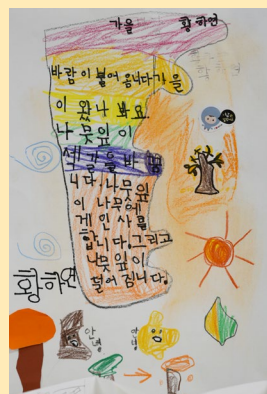 가을 황하연
바람이 불어옵니다 가을
이 왔나 봐요.
나뭇잎이
색깔을 바꿉
니다. 나뭇잎
이 나무에
게 인사를
합니다. 그리고
나뭇잎이
떨어집니다.
황하연
안녕
안녕